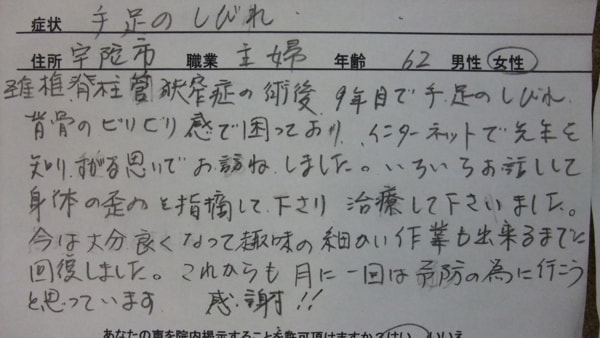 症状 手足のしびれ
住所 宇陀市 職業 主婦 年齢 62 男性 女性
頚椎脊柱管狭窄症の術後、9年目で手、足のしびれ、
背骨のビリビリ感で困っており、インターネットで先生を
知り、すがる思いでお訪ねしました。いろいろお話しして
身体の歪みを指摘して下さり 治療して下さいました。
今は大分良くなって趣味の細かい作業も出来るまでに
回復しました。これからも月に一回は予防の為に行こう
と思っています 感謝!!
あなたの声を院内掲示することを許可頂けますか?はい いいえ